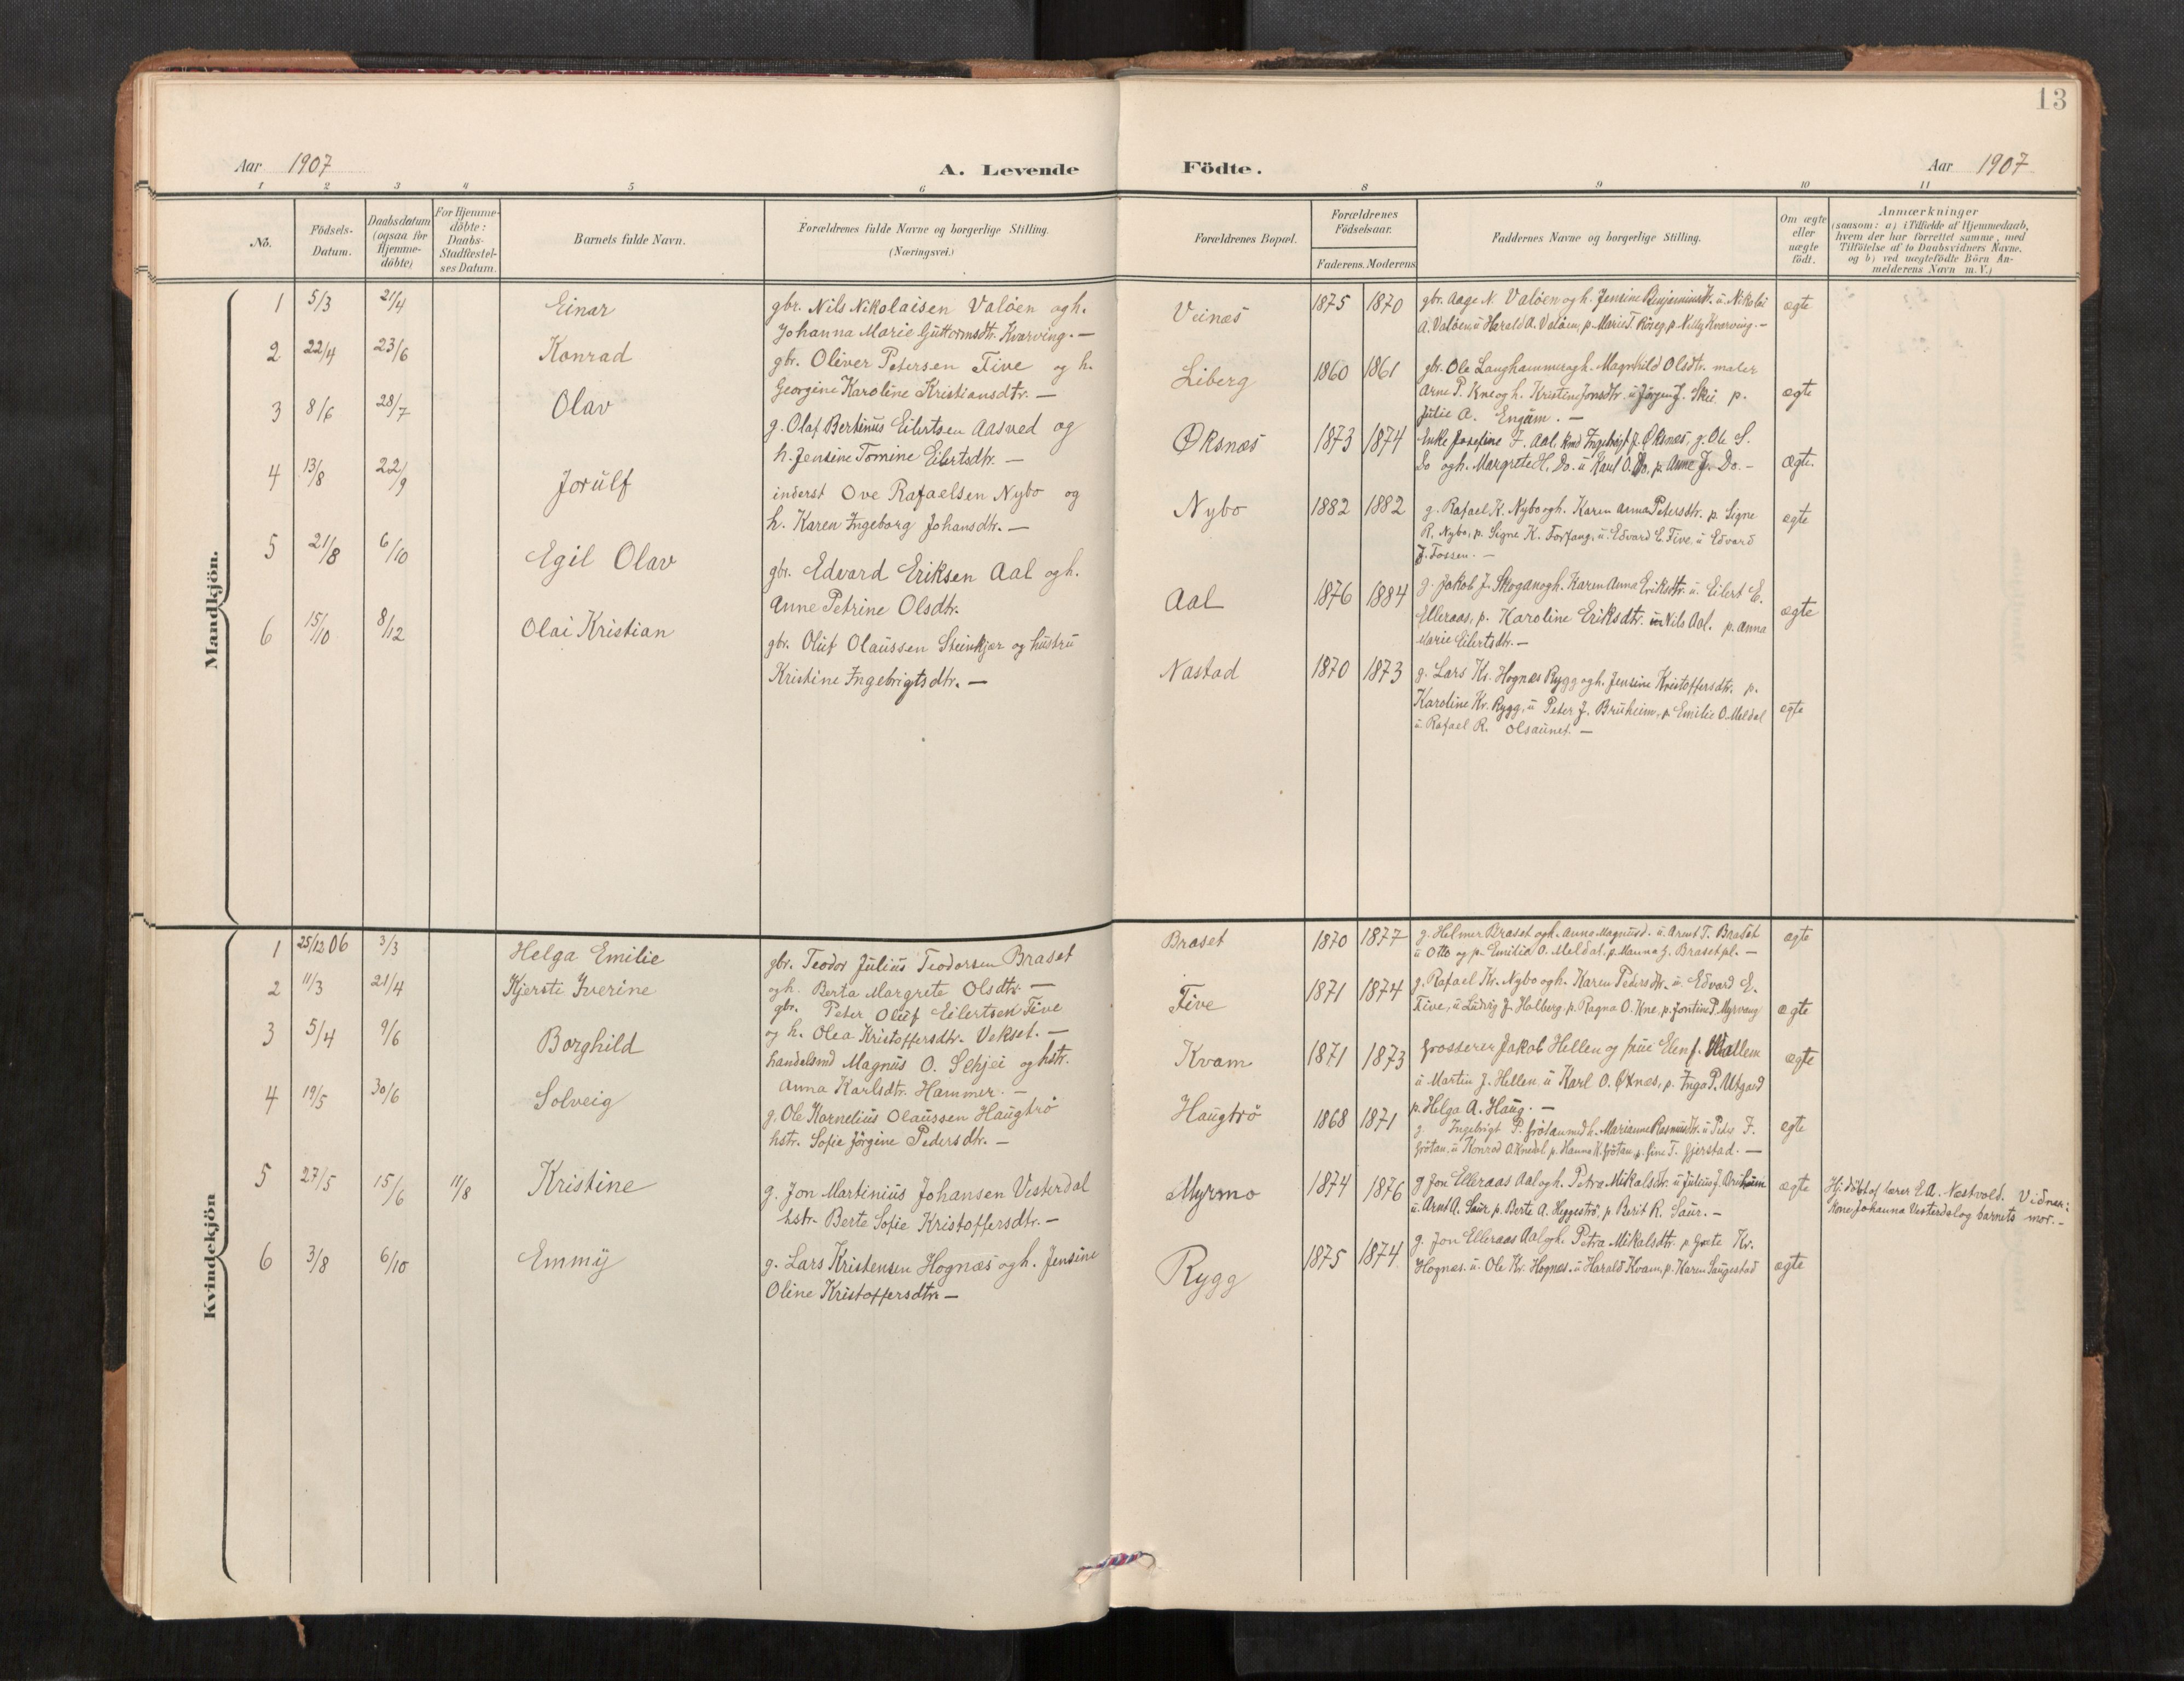 13
Aar 1907
A. Levende Födte.
Aar 1907
1 2 3 4 5 6 8 9 10 11
No.
Födsels-Datum.
Daabsdatum (ogsaa for Hjemme-döbte)
For Hjemme-döbte: Daabs-Stadfestel-ses Datum.
Barnets fulde Navn.
Forældrenes fulde Navne og borgerlige Stilling.
(Næringsvei.)
Forældrenes Bopæl.
Forældrenes Födselsaar.
Faderens. Moderens
Faddernes Navne og borgerlige Stilling.
Om ægte eller uægte födt.
Anmærkninger
(saasom: a) i Tilfælde af Hjemmedaab,
hvem der har forrettet samme, med
Tilföielse af to Daabsvidners Navne.
og b) ved uægtefödte Börn An-
melderens Navn m. V.)
Mandkjön.
1 5/3 21/4 Einar
gbr. Nils Nikolaisen Valöen og h.
Johanna Marie Guttormsdtr. Kvarving. —
Veinæs 1875 1870
gbr. Aage N. Valöen og h. Jensine Benjaminsdtr. u. Nikolai
A. Valöen, u Harald A. Valöen, p. Marie T. Röseg, p. Killy Kvarving. —
ægte
2 22/4 23/6 Konrad
gbr. Oliver Petersen Five og h.
Georgine Karoline Kristiansdtr. —
Liberg 1860 1861
gbr. Ole Langhammer og h. Magnhild Olsdtr. maler
Arne P. Kne og h. Kristine Jonsdtr. u Jörgen J. Skei p.
Julie A. Engum. —
ægte
3 8/6 28/7 Olav
g. Olaf Bertinus Eilertsen Aasved og
h. Jensine Tomine Eilertsdtr. —
Öksnæs 1873 1874
Enke Josefine J. Aal, kmd Ingebrigt J. Öksnæs, g. Ole S.
Do og h. Margrete H. Do. u Karl O. Do, p. Anne J. Do. —
ægte.
4 13/8 22/9 Jorulf
inderst Ove Rafaelsen Nybo og
h. Karen Ingeborg Johansdtr. —
Nybo 1882 1882
g. Rafael K. Nybo og h. Karen Anna Petersdtr. p. Signe
R. Nybo, p. Signe K. Forfang, u. Edvard E. Five. u Edvard
J. Fossen. —
ægte
5 21/8 6/10 Egil Olav
gbr. Edvard Eriksen Aal og h.
Anne Petrine Olsdtr.
Aal 1876 1884
g. Jakob J. Skogan og h. Karen Anna Eriksdtr. u. Eilert E.
Elleraas, p. Karoline Eriksdtr. u Nils Aal. p. Anna
Marie Eilertsdtr. —
ægte
6 15/10 8/12 Olai Kristian
gbr. Oluf Olaussen Steinkjær og hustru
Kristine Ingebrigtsdtr. —
Nastad 1870 1873
g. Lars Kr. Hognæs Rygg og h. Jensine Kristoffersdtr. p.
Karoline Kr. Rygg, u Peter J. Bruheim, p. Emilie O. Meldal
u. Rafael R. Olsaunet. —
ægte
Kvindekjön
1 25/12 06 3/3 Helga Emilie
gbr. Teodor Julius Teodorsen Braset
og h. Berta Margrete Olsdtr. —
Braset 1870 1877
g. Helmer Braset og h. Anna Magnusd. u. Arnt T. Braset
u Otto og p. Emilie O. Meldal, p. Manna J. Brasetpl. —
ægte
2 11/3 21/4 Kjersti Iverine
gbr. Peter Oluf Eilertsen Five
og h. Olea Kristoffersdtr. Vekset. —
Five 1871 1874
g. Rafael Kr. Nybo og h. Karen Pedersdtr. u. Edvard E.
Five, u Ludvig J. Holberg, p. Ragna O. Kne, p. Jontine P. Myrvang
ægte
3 5/4 9/6 Borghild
handelsmd Magnus O. Schjei og hstr.
Anna Karlsdtr. Hammer. —
Kvam 1871 1873
Grosserer Jakob Hellen og frue Elen J. Hallem
u Martin J. Hellen. u Karl O. Öxnes, p. Inga P. Utgard
p. Helga A. Haug. —
ægte
4 19/5 30/6 Solveig
g. Ole Kornelius Olaussen Haugtrö
hstr. Sofie Jörgine Pedersdtr. —
Haugtrö 1868 1871
g. Ingebrigt P. Grötan med h. Marianne Rasmusdtr. u Peder F.
Grötan, u Konrad A. Knedal p. Hanna K. Grötan, p. Gine T. Gjerstad. —
ægte
5 27/5 15/6 11/8 Kristine
g. Jon Martinius Johansen Vesterdal
hstr. Berte Sofie Kristoffersdtr. —
Myrmo 1874 1876
g Jon Elleraas Aal og h. Petra Mikalsdtr. u Julius J.
u. Arnt A. Saur p. Berte A. Heggeströ, p. Berit R. Saur. —
ægte
Hj. döbt af lærer E. A. Næstvold. Vidner:
Kone Johanna Vesterdal og barnets mor. —
6 3/8 6/10 Emmy
g. Lars Kristensen Hognæs og h. Jensine
Oline Kristoffersdtr. —
Rygg 1875 1874
g. Jon Elleraas Aal og h. Petra Mikalsdtr. p. Grete Kr.
Hognæs. u. Ole Kr. Hognæs. u Harald Kvam, p. Karen Saugestad
ægte